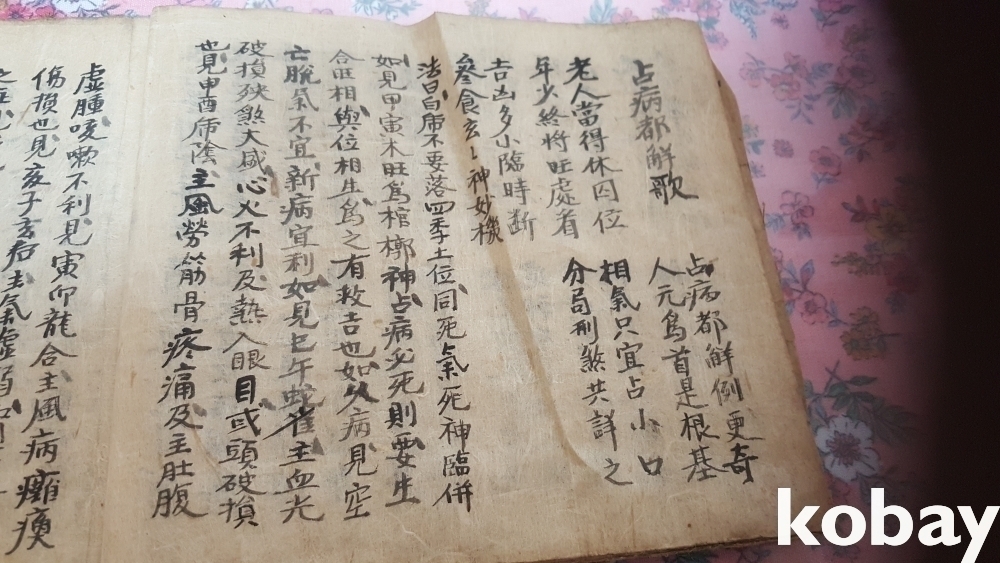 占病都解歌
占病都解例更奇
人元爲首是根基
老人當得休囚位
相氣只宜占小口
年少終將旺處看
分局刑煞共詳之
吉凶多小臨時斷
參食玄〻神妙機
法曰白虎不要落四季土位同死氣死神臨併
如見甲寅木旺爲棺槨神占病必死則要生
合旺相與位相生爲之有救吉也如久病見空
亡脫氣不宜新病宜利如見巳午蛇雀主血光
破損殃煞大感心火不利及熱入眼目或頭破損
也見申酉虎陰主風勞筋骨疼痛及主肚腹
虛腫咳嗽不利見寅卯龍合主風病癱瘓
傷損也見亥子玄后主氣虛弱
kobay